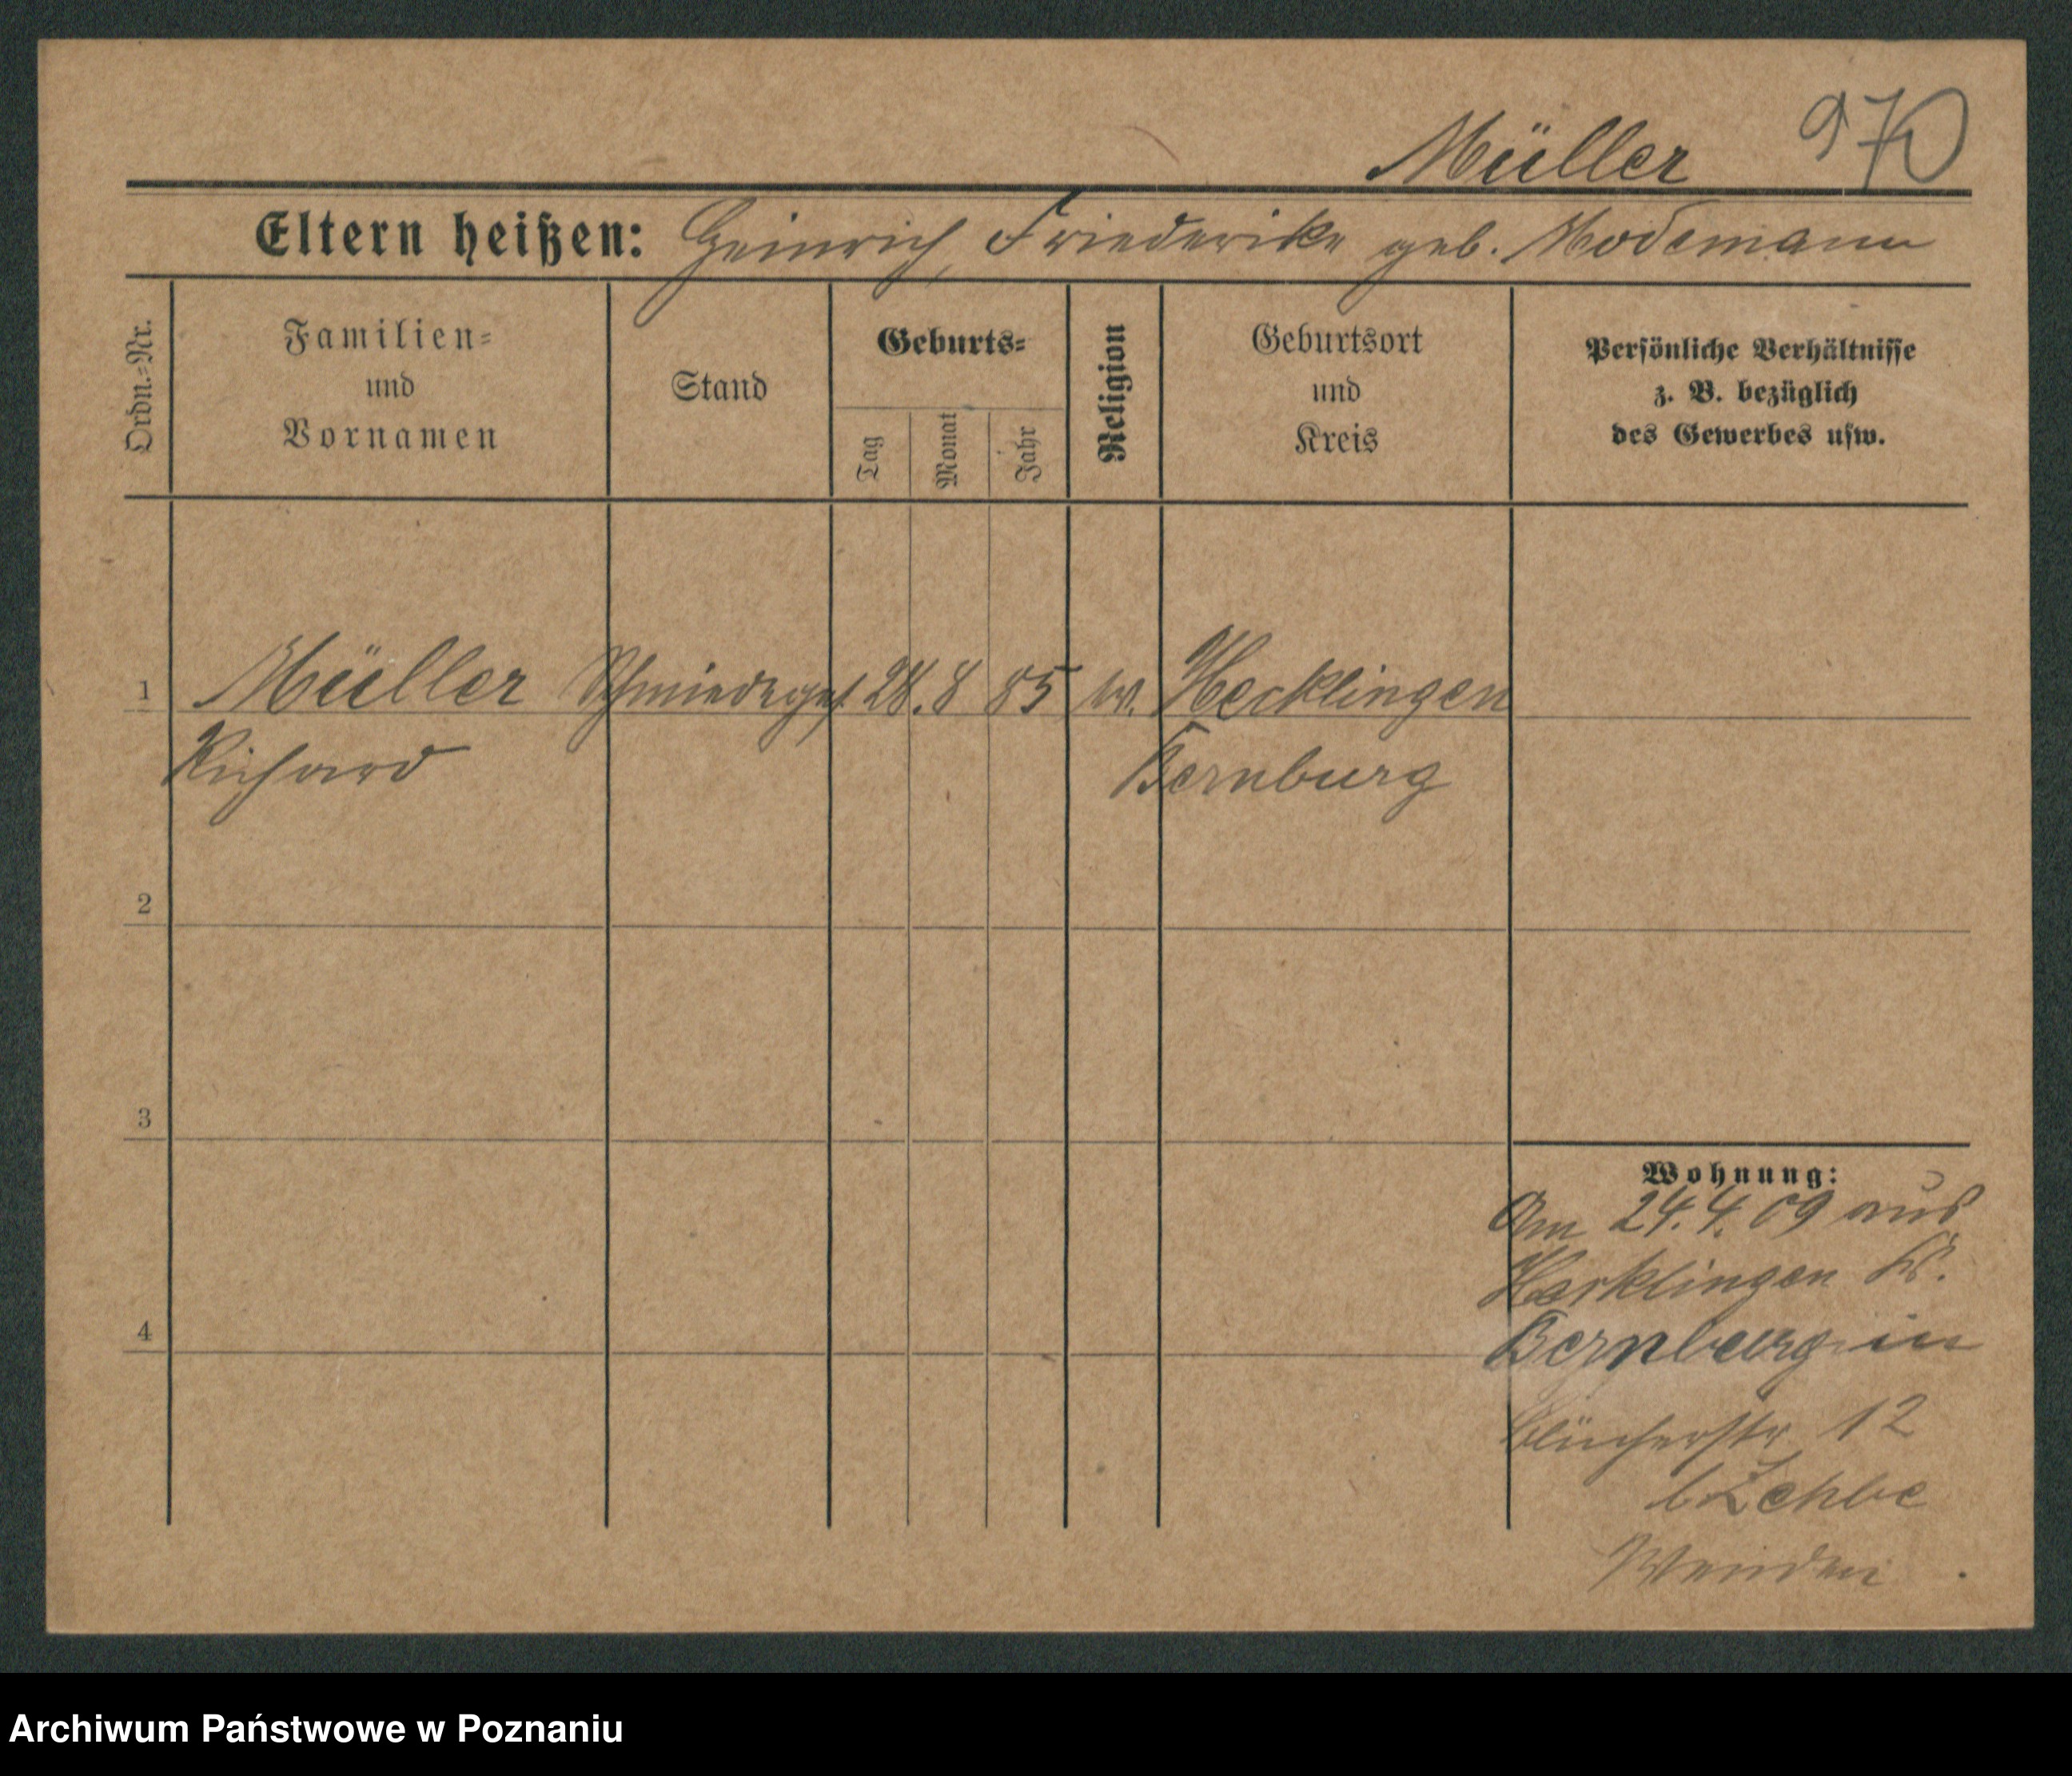 Müller 970
Eltern heißen: Heinrich, Friederike geb. Modemann
Ordn.-Nr.
Familien-
und
Vornamen
Stand
Geburts-
Tag
Monat
Jahr
Religion
Geburtsort
und
Kreis
Persönliche Verhältnisse
z. B. bezüglich
des Gewerbes usw.
1 Müller Schmiedeges. 28. 8 85 ev. Hecklingen
Richard Bernburg
2
3
4
Wohnung:
Am 24.4.09 aus
Hecklingen Kr.
Bernburg in
Blücherstr 12
b
Archiwum Państwowe w Poznaniu